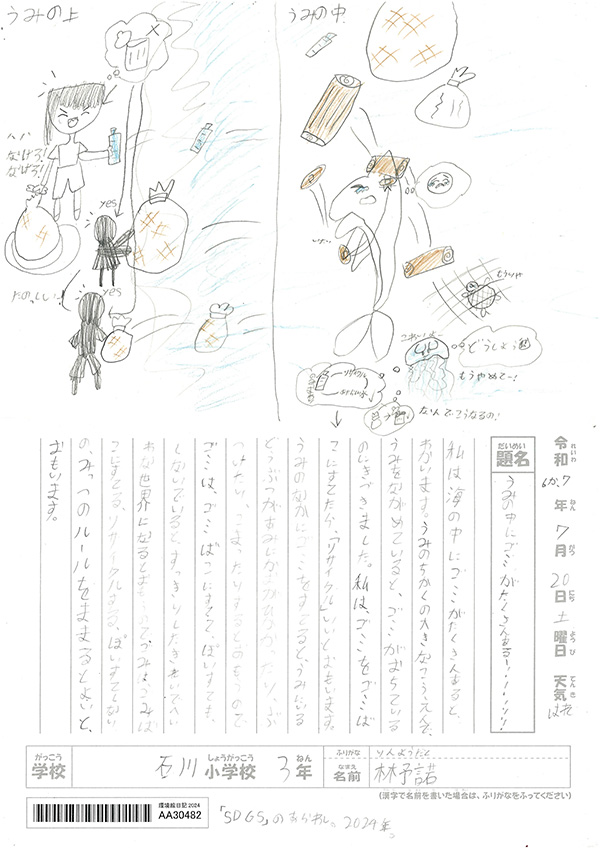 うみの上
うみの中
ハハ
なげろ!
なげろ!
yes
たのしい
yes
どうしよう
もうやめてー!
なんでこうなるの!
令和6か.7年7月20日土曜日 天気はれ
れいわ ねん がつ にち ようび てんき
だいめい
題名
うみの中にゴミがたくさんあるー
私は海の中にゴミがたくさんあると、
おもいます。うみのちかくの大きなこうえんで、
うみをながめていると、ゴミがおちている
のにきづきました。私は、ゴミをゴミば
こにすてたら、「リサイクル」いいとおもいます。
うみのなかにゴミをすてると、うみにいる
どうぶつが
ゴミは、ゴミばこにすてて、ぽいすても、
しないでいると、すっきりしたきれいでへい
わな世界になるとおもうので、ゴミは、ゴミば
こにすてる、リサイクルする、ぽいすてしない
の、みっつのルールをまもるとよいと、
おもいます。
がっこう
学校
石川小学校3年
しょうがっこう ねん
ふりがな
りんようだく
なまえ
名前
林予諾
(漢字で名前を書いた場合は、ふりがなをふってください)
環境絵日記2024
AA30482
「SDGS」のあらわし。2024年。